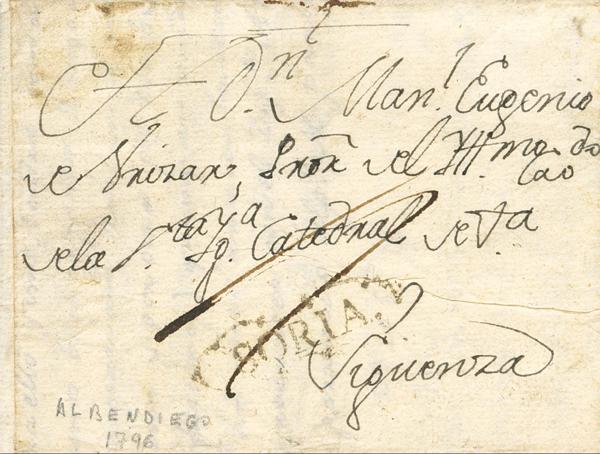 A D.ⁿ Man.ˡ Eugenio
de Vrizar, Pror del Ill.mo Cao do
dela S.ta Yg.a Catedral de V.a
SORIA
Siguenza
ALBENDIEGO
1796